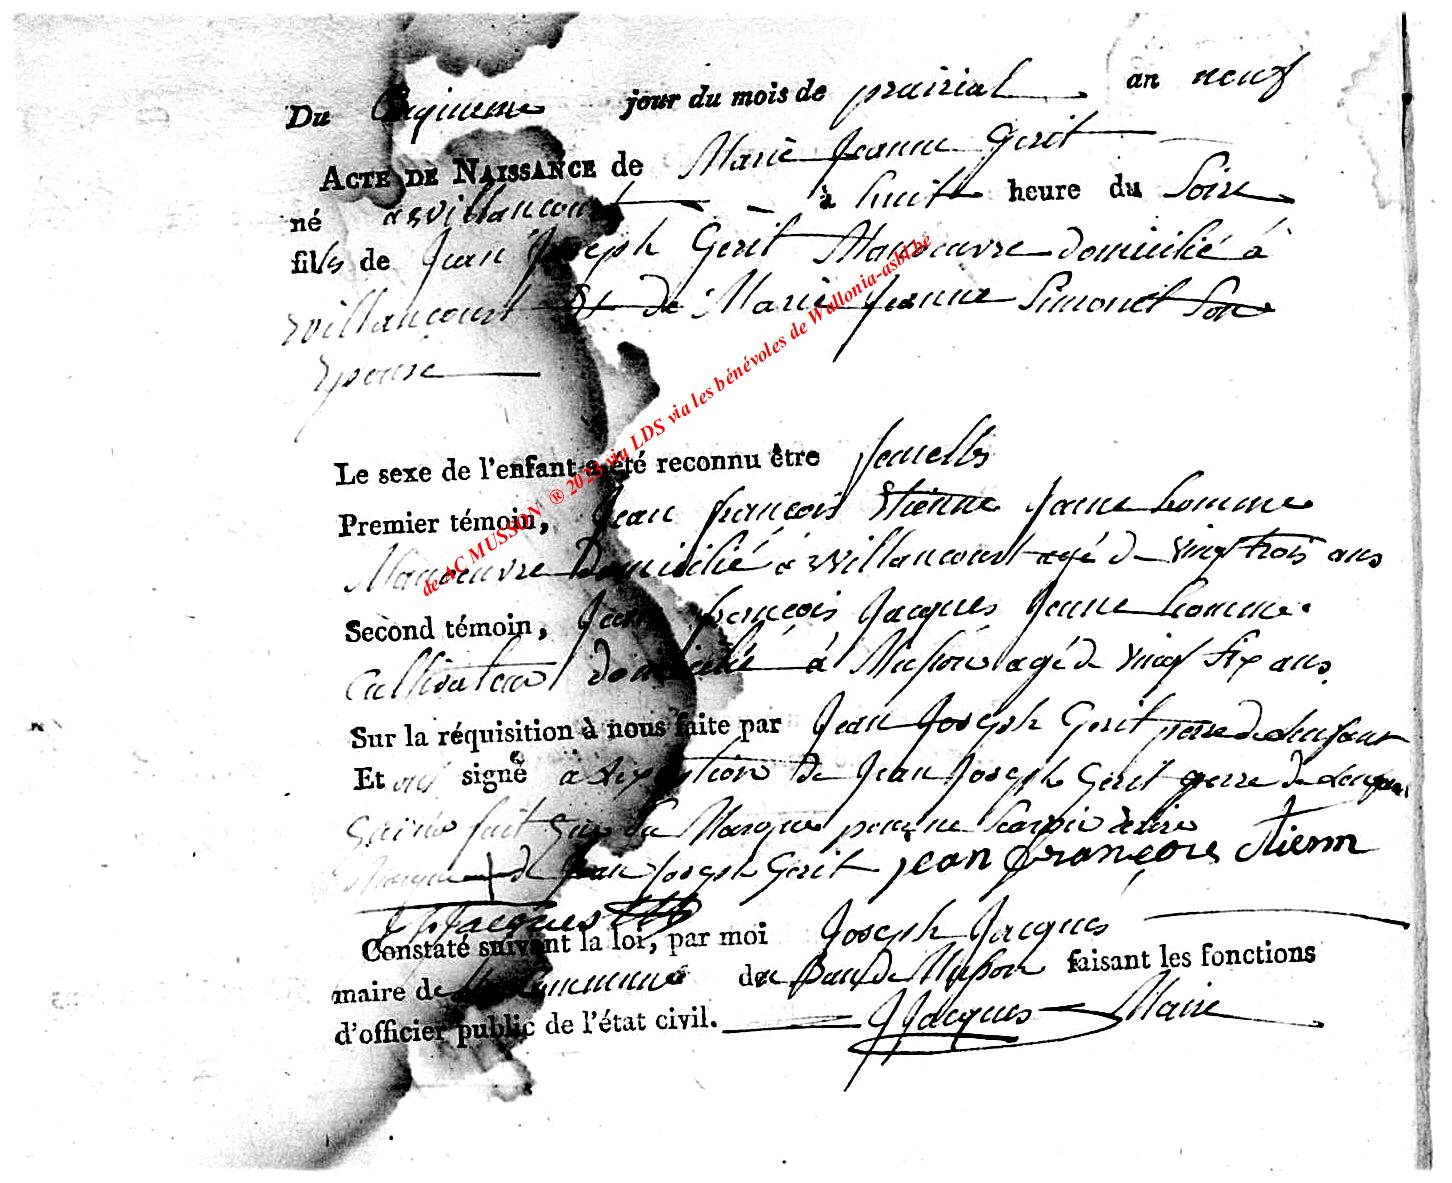 Du Cinquieme jour du mois de prairial an neuf
ACTE DE NAISSANCE de Marie Jeanne Gerit
né a Willancourt à huit heure du Soire
fille de Jean Joseph Gerit Manoeuvre domicilié à
Willancourt Et de Marie Jeanne Simonet Son
Epouse
Le sexe de l'enfant a été reconnu être femelle
Premier témoin, Jean françois Etienne Jeune homme
Manoeuvre Domicilié a Willancourt agé de vingt trois ans
Second témoin, Jean françois Jacques Jeune homme
Cultivateur domicilié à Musson agé de vingt six ans
Sur la réquisition à nous faite par Jean Joseph Gerit perre de Lenfant
Et ont signé a de Jean Joseph Gerit perre de Lenfant
fait que Sa Marque pour ne
Marque de Jean Joseph Gerit jean françois Etienn
Jacques
Constaté suivant la loi, par moi Joseph Jacques
maire de la Commune du Ban de Musson faisant les fonctions
d'officier public de l'état civil. JJacques Maire
de AC MUSSON ® 2023 via LDS via les bénévoles de Wallonia-asbl.be